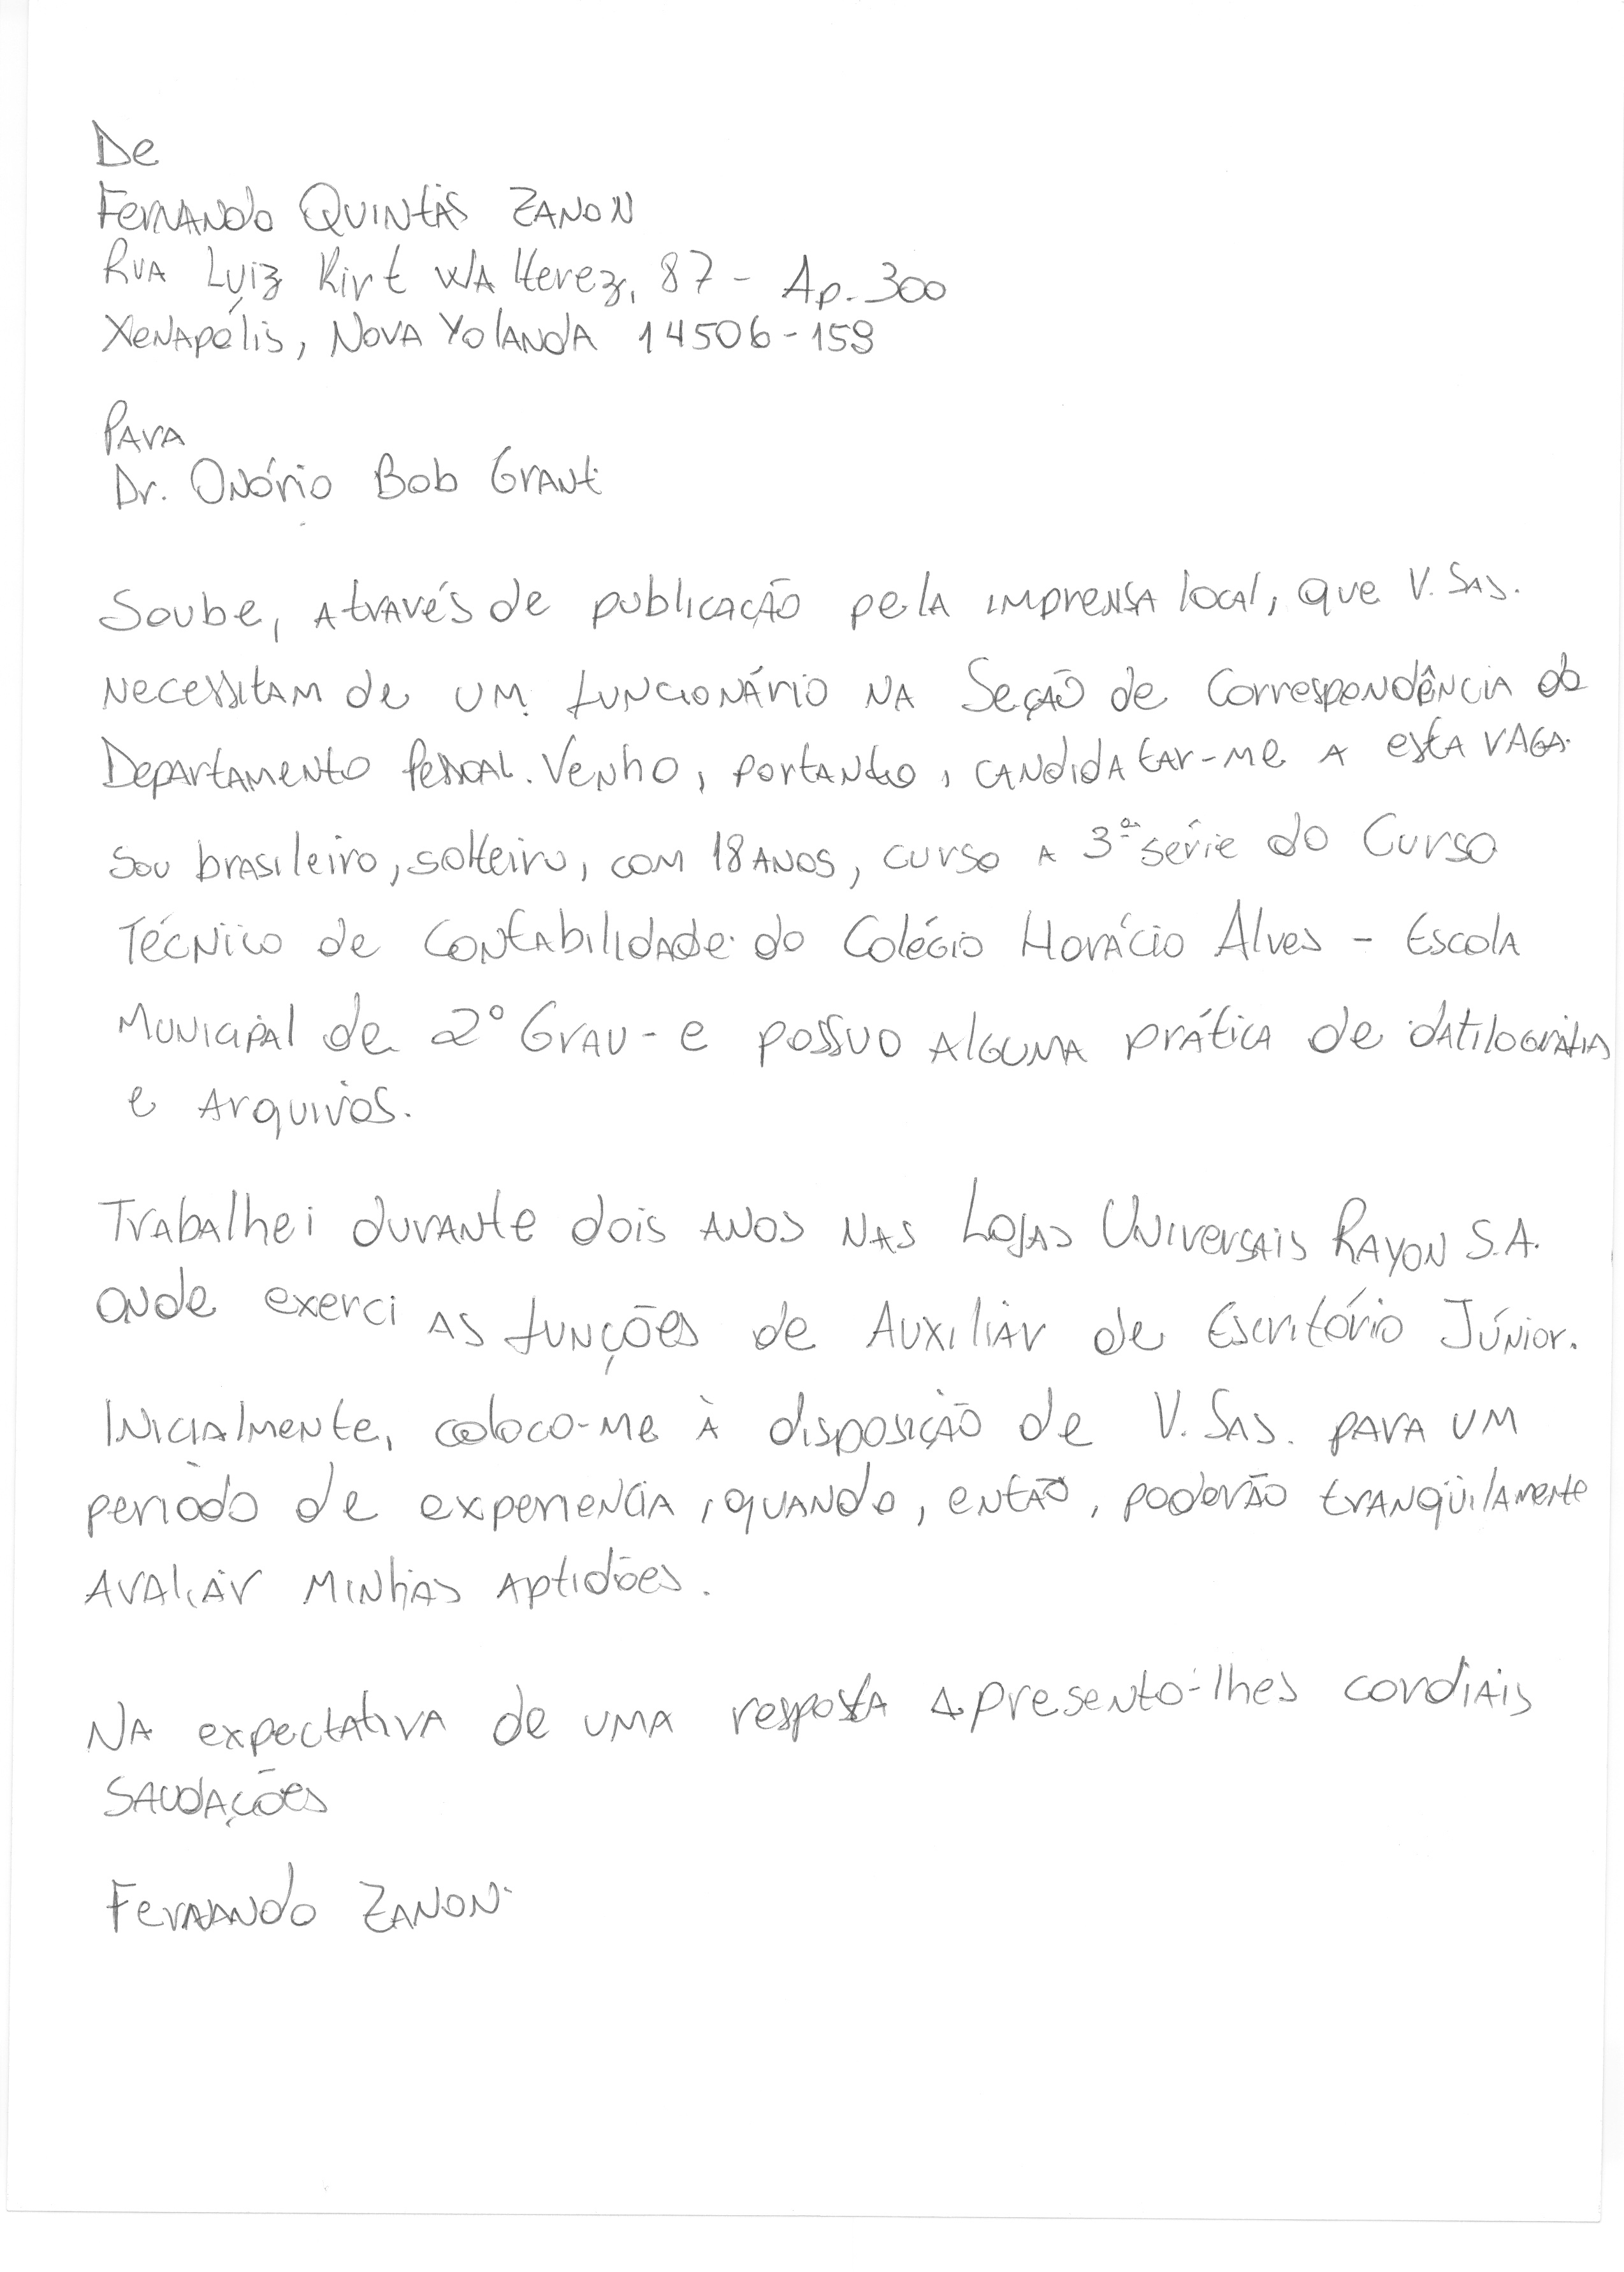 De
Fernando Quintas Zanon
Rua Luiz Kirt Walterez, 87 - Ap. 300
Xenapólis, Nova Yolanda 14506-159
Para
Dr. Onório Bob Grant
Soube, através de publicação pela imprensa local, que V. Sas.
necessitam de um funcionário na Seção de Correspondência do
Departamento Pessoal. Venho, portanto, candidatar-me a esta vaga.
Sou brasileiro, solteiro, com 18 anos, curso a 3ª série do Curso
Técnico de Contabilidade do Colégio Horácio Alves - Escola
Municipal de 2º Grau - e possuo alguma prática de datilografia
e arquivos.
Trabalhei durante dois anos nas Lojas Universais Rayon S.A.
onde exerci as funções de Auxiliar de Escritório Júnior.
Inicialmente, coloco-me à disposição de V. Sas. para um
período de experiencia, quando, então, poderão tranqüilamente
avaliar minhas aptidões.
Na expectativa de uma resposta apresento-lhes cordiais
saudações
Fernando Zanon